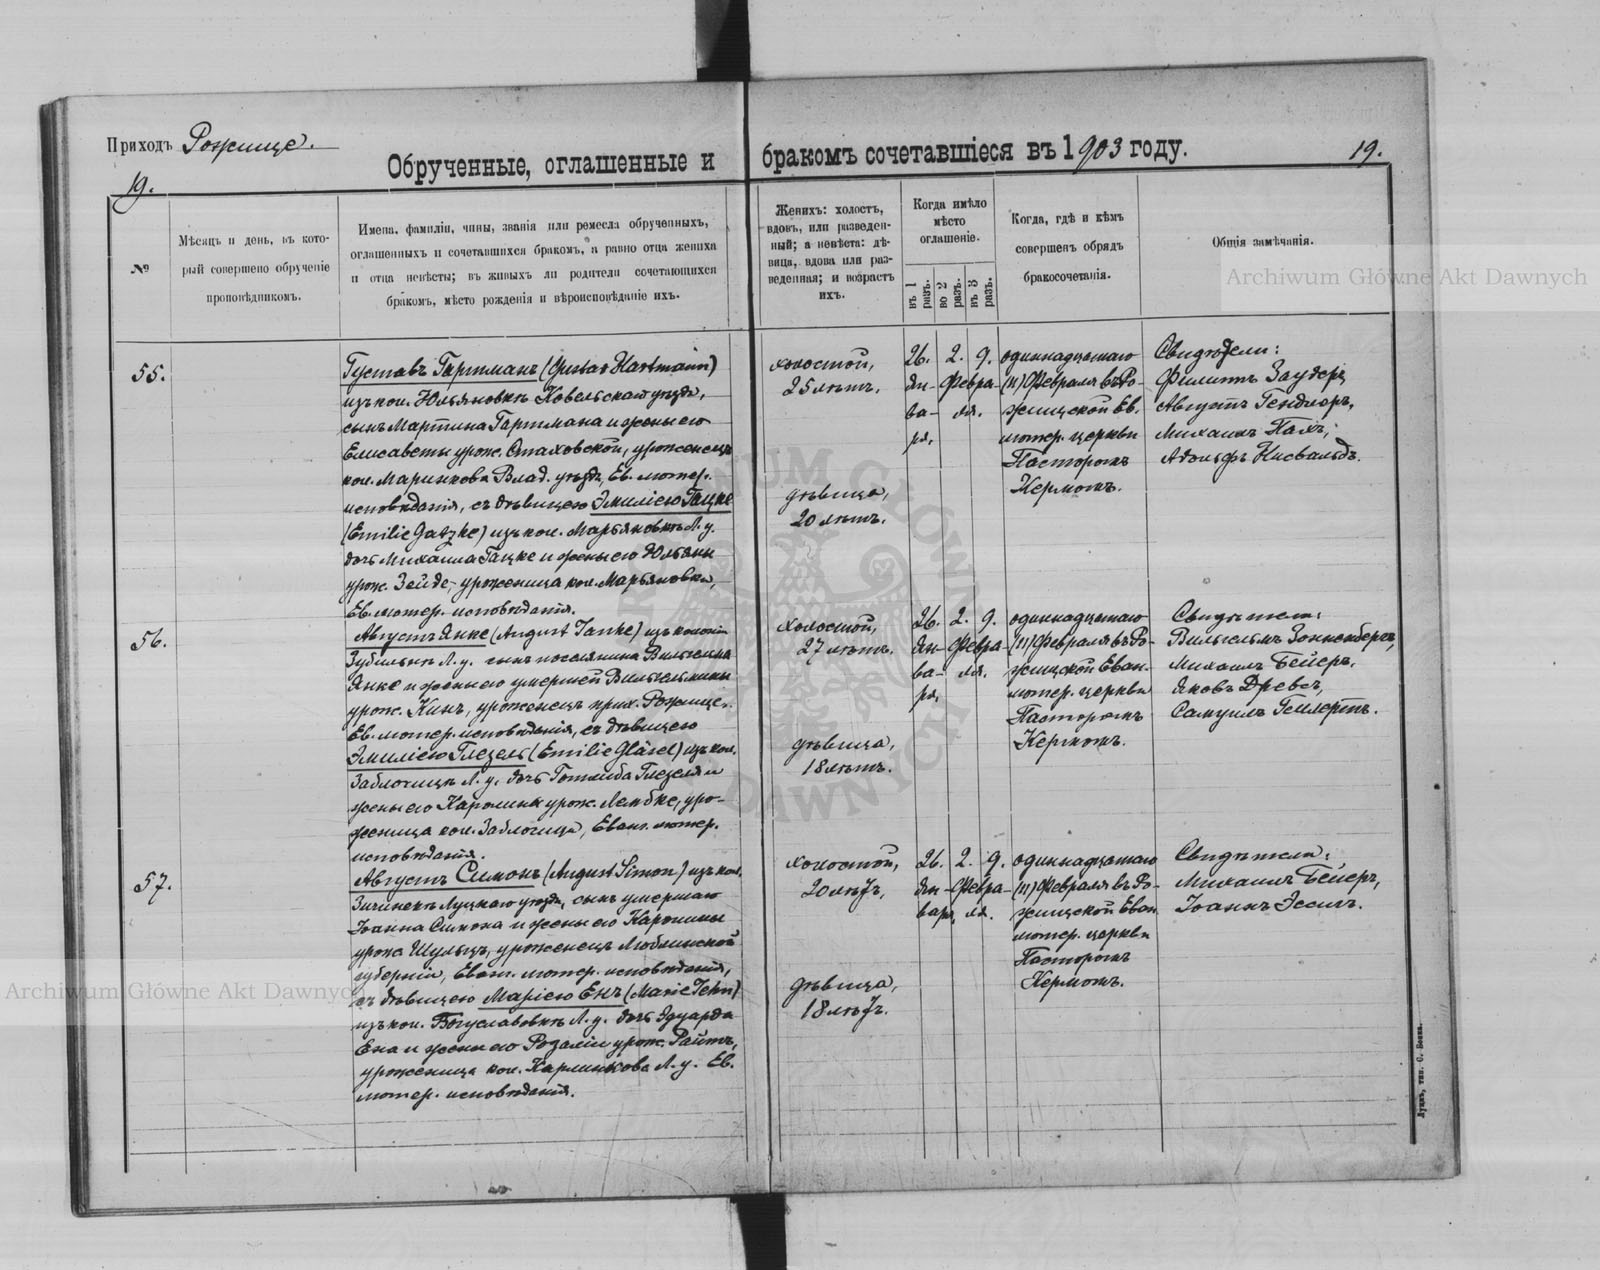 Приходъ Рожище.
Обрученные, оглашенные и бракомъ сочетавшіеся въ 1903 году.
19.
19.
№
Мѣсяцъ и день, въ кото-
рый совершено обрученіе
проповѣдникомъ.
Имена, фамиліи, чины, званія или ремесла обрученныхъ,
оглашенныхъ и сочетавшихся бракомъ, а равно отца жениха
и отца невѣсты; въ живыхъ ли родители сочетающихся
бракомъ, мѣсто рожденія и вѣроисповѣданіе ихъ.
Женихъ: холостъ,
вдовъ, или разведен-
ный; а невѣста: дѣ-
вица, вдова или раз-
веденная; и возрастъ
ихъ.
Когда имѣло
мѣсто
оглашеніе.
въ 1 разъ.
во 2 разъ.
въ 3 разъ.
Когда, гдѣ и кѣмъ
совершенъ обрядъ
бракосочетанія.
Общія замѣчанія.
55.
Густавъ Гартманъ (Gustav Hartmann)
изъ кол. Юльяновкѣ Ковельскаго уѣзда,
сынъ Мартина Гартмана и жены его
Елисаветы урож. Стаховской, уроженецъ
кол. Маринкова Влад. уѣзда, Ев. лютер.
исповѣданія, съ дѣвицею Эмиліею Гацке
(Emilie Gatzke) изъ кол. Марьяновкѣ Л. у.
дочь Михаила Гацке и жены его Юльяны
урож. Зейде, уроженица кол. Марьяновки,
Ев. лютер. исповѣданія.
холостой,
25 лѣтъ.
дѣвица,
20 лѣтъ.
26. 2. 9.
Ян- Февра-
ва- ля.
ря,
одиннадцатаго
(11) Февраля въ Ро-
жищской Ев.
лютер. церкви
Пасторомъ
Кермомъ.
Свидѣтели:
Филиппъ Заудеръ,
Августъ Гендларъ,
Михаилъ Пахъ,
Адольфъ Нисвальдъ.
56.
Августъ Янке (August Janke) изъ колоніи
Зубильнѣ Л. у. сынъ поселянина Вильгельма
Янке и жены его умершей Вильгельмины
урож. Кинъ, уроженецъ прих. Рожище,
Ев. лютер. исповѣданія, съ дѣвицею
Эмиліею Глезель (Emilie Gläsel) изъ кол.
Заблотцѣ Л. у. дочь Готлиба Глезеля и
жены его Каролины урож. Лембке, уро-
женица кол. Заблотца, Еванг. лютер.
исповѣданія.
холостой,
27 лѣтъ.
дѣвица,
18 лѣтъ.
26. 2. 9.
Ян- Февра-
ва- ля.
ря,
одиннадцатаго
(11) Февраля въ Ро-
жищской Еван.
лютер. церкви
Пасторомъ
Кермомъ.
Свидѣтели:
Вильгельмъ Зонненбергъ,
Михаилъ Бейеръ,
Яковъ Древсъ,
Самуилъ Геллертъ.
57.
Августъ Симонъ (August Simon) изъ кол.
Луцкаго уѣзда, сынъ умершаго
Іоанна Симона и жены его Каролины
урож. Шульцъ, уроженецъ Люблинской
губерніи, Еванг. лютер. исповѣданія,
съ дѣвицею Маріею Енъ (Marie Jehn)
изъ кол. Богуславовкѣ Л. у. дочь Эдуарда
Ена и жены его Розаліи урож. Райтъ,
уроженица кол. Карлинкова Л. у. Ев.
лютер. исповѣданія.
холостой,
20 лѣтъ,
дѣвица,
18 лѣтъ.
26. 2. 9.
Ян- Февра-
варя, ля.
одиннадцатаго
(11) Февраля въ Ро-
жищской Еван.
лютер. церкви
Пасторомъ
Кермомъ.
Свидѣтели:
Михаилъ Бейеръ,
Іоаннъ Эссигъ.
Archiwum Główne Akt Dawnych
Archiwum Główne Akt Dawnych